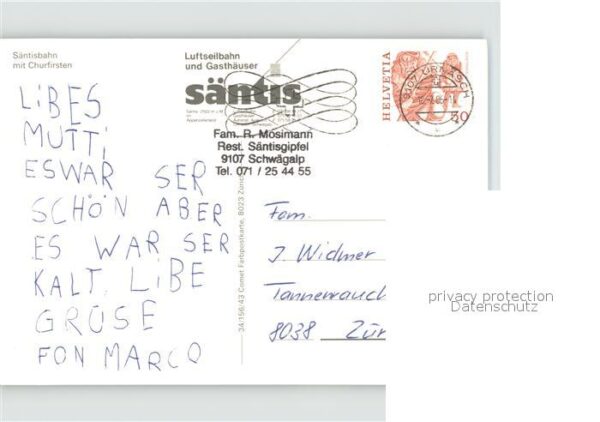 Säntisbahn
mit Churfirsten
Luftseilbahn
und Gasthäuser
säntis
Fam. R. Mosimann
Rest. Säntisgipfel
9107 Schwägalp
Tel. 071 / 25 44 55
HELVETIA
9107 URNÄSCH
30
LIBES
MUTTI
ESWAR SER
SCHÖN ABER
ES WAR SER
KALT. LIBE
GRÜSE
FON MARCO
34/156/43 Comet Farbpostkarte, 8023 Zürich
Fam.
J. Widmer
Tannenrauch
8038 Zür
privacy protection
Datenschutz